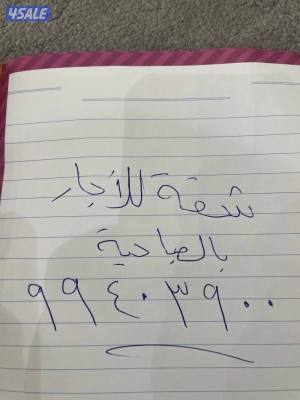 4SALE
شقة للأجار
بالصباحية
٩٩٤٠٣٩٠٠